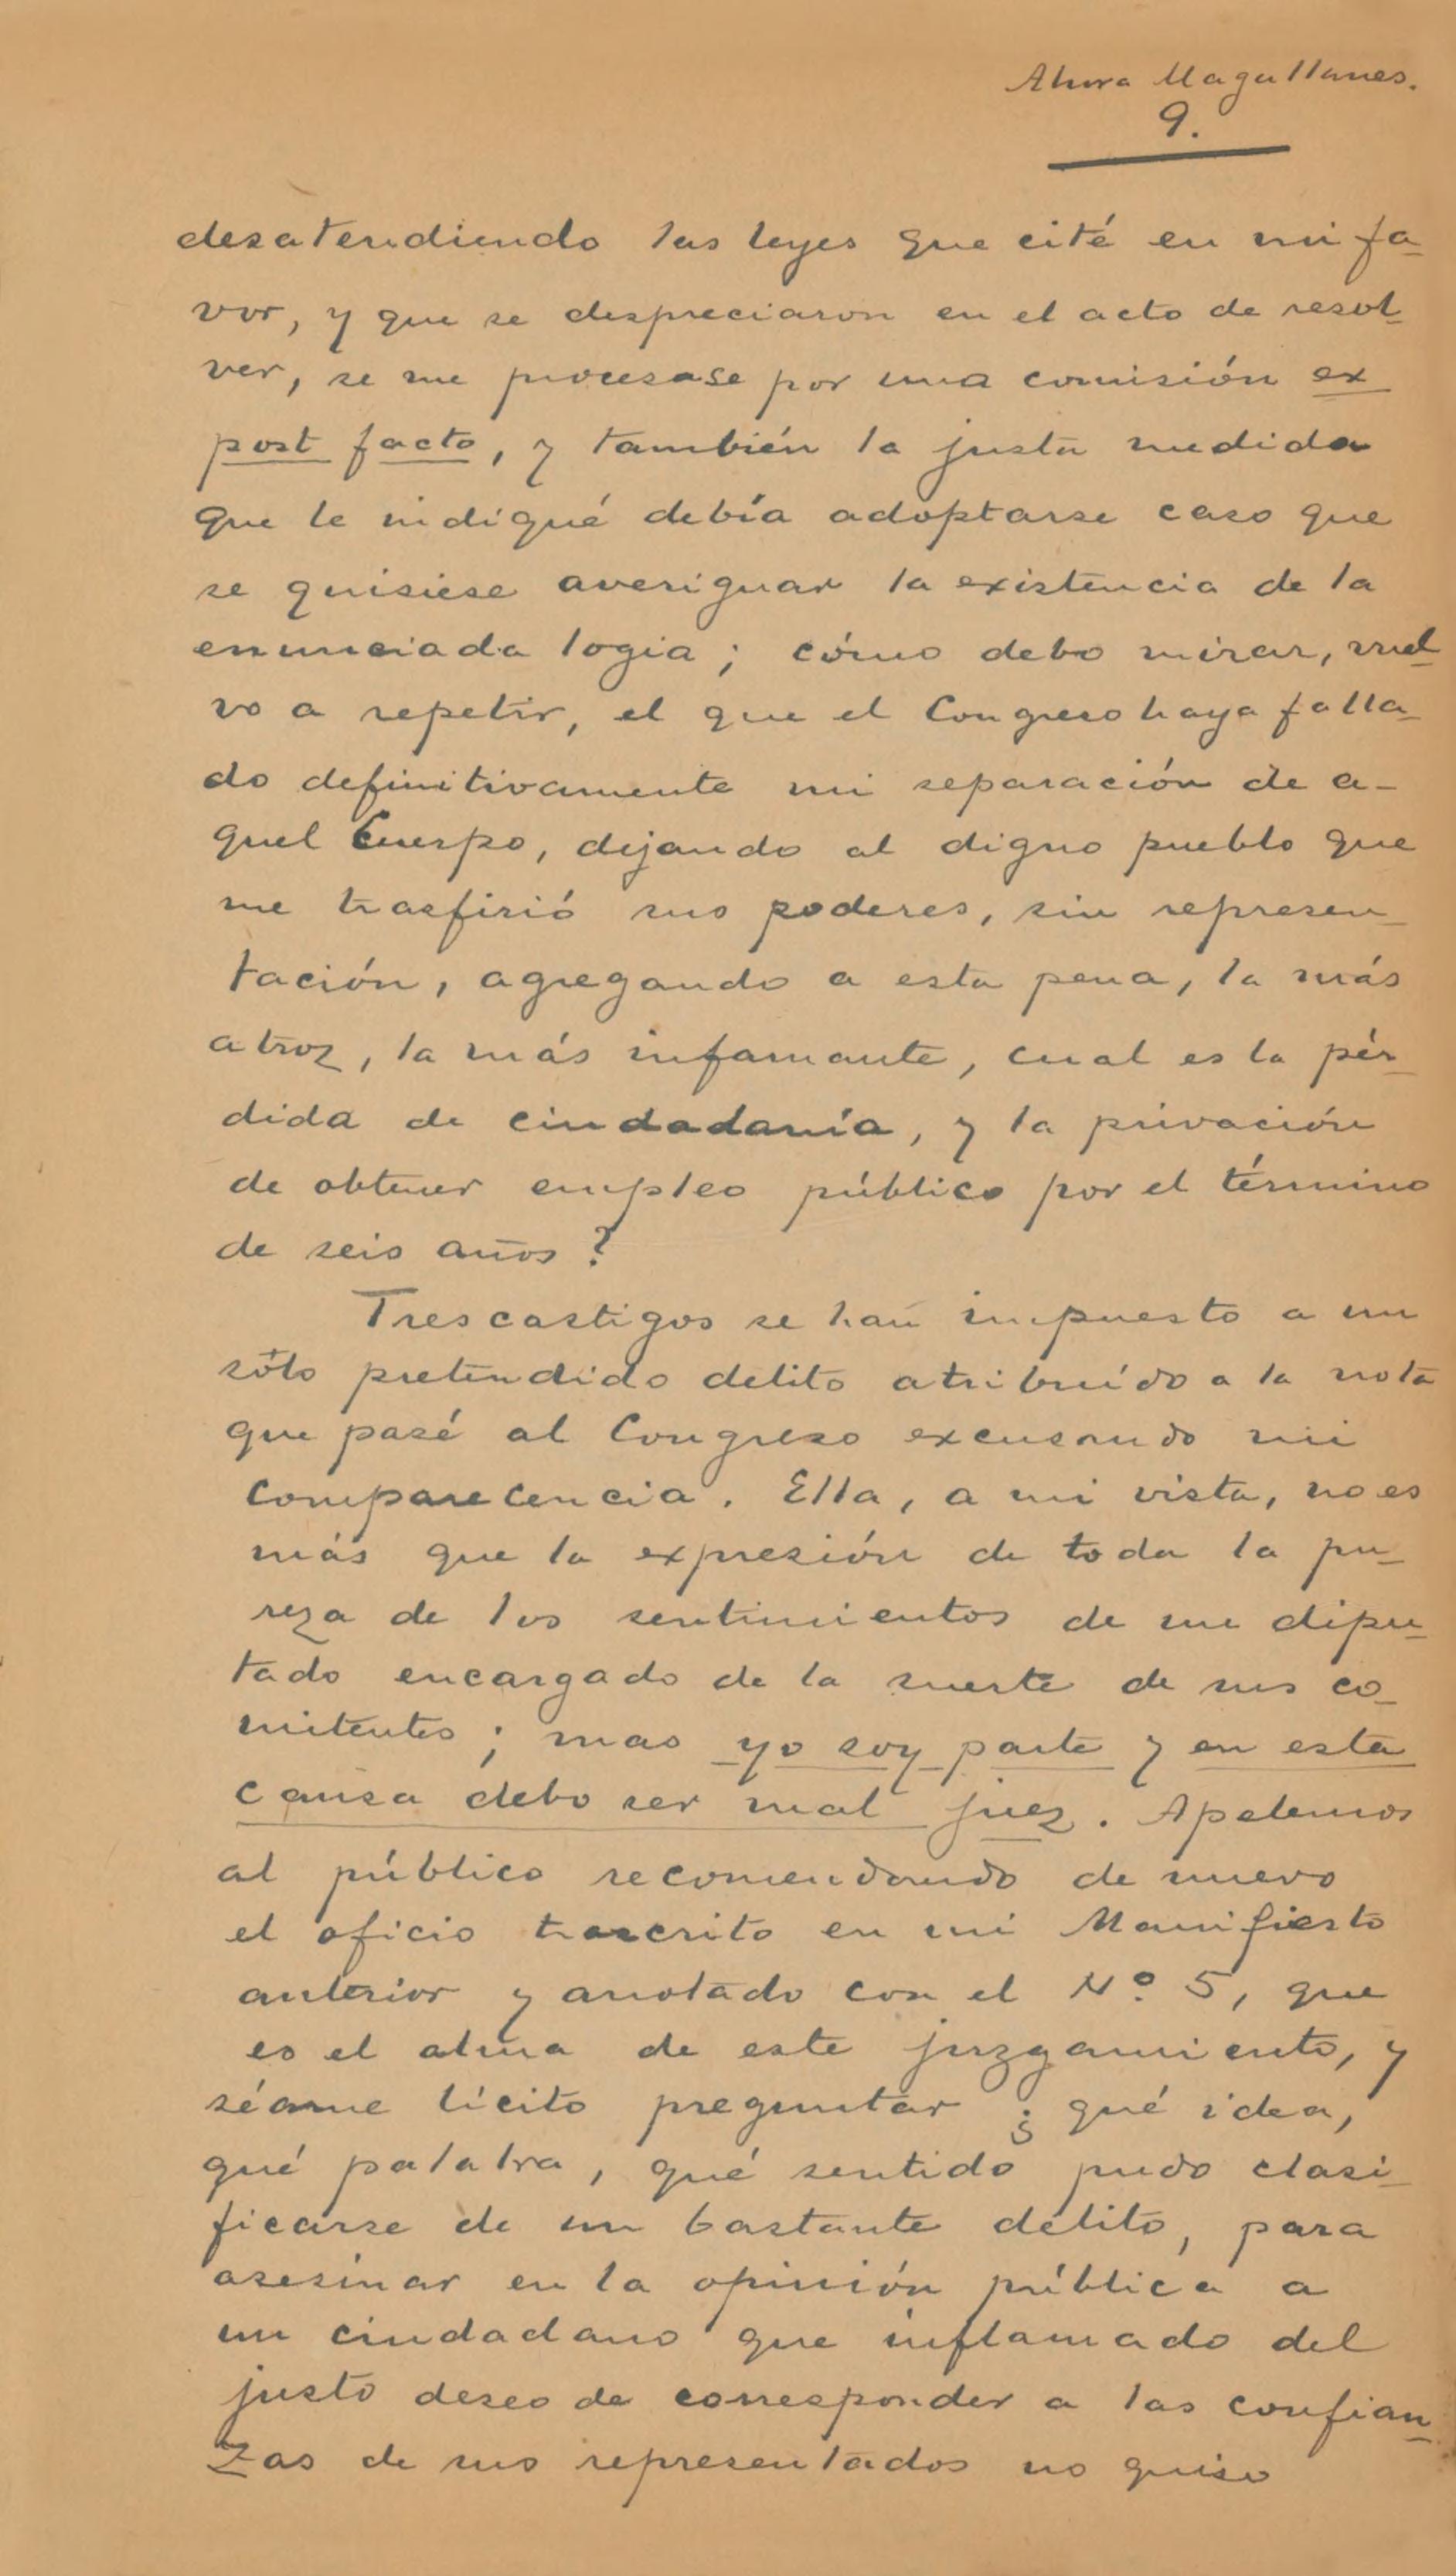 Ahora Magallanes.
9.
desatendiendo las leyes que cité en mi fa-
vor, y que se despreciaron en el acto de resol-
ver, se me procesase por una comisión ex
post facto, y también la justa medida
que le indiqué debía adoptarse caso que
se quisiese averiguar la existencia de la
enunciada logia; cómo debo mirar, vuel-
vo a repetir, el que el Congreso haya falla-
do definitivamente mi separación de a-
quel Cuerpo, dejando al digno pueblo que
me trasfirió sus poderes, sin represen-
tación, agregando a esta pena, la más
atroz, la más infamante, cual es la pér-
dida de ciudadanía, y la privación
de obtener empleo público por el término
de seis años?
Tres castigos se han impuesto a un
sólo pretendido delito atribuído a la nota
que pasé al Congreso excusando mi
comparecencia. Ella, a mi vista, no es
más que la expresión de toda la pu-
reza de los sentimientos de un dipu-
tado encargado de la suerte de sus co-
mitentes; mas yo soy parte y en esta
causa debo ser mal juez. Apelemos
al público recomendando de nuevo
el oficio trascrito en mi Manifiesto
anterior y anotado con el Nº 5, que
es el alma de este juzgamiento, y
séame lícito preguntar ¿qué idea,
qué palabra, qué sentido pudo clasi-
ficarse de un bastante delito, para
asesinar en la opinión pública a
un ciudadano que inflamado del
justo deseo de corresponder a las confian-
zas de sus representados no quiso